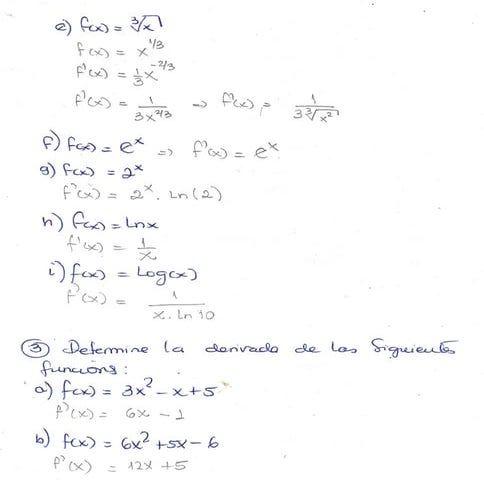 e) f(x) = ∛x
f(x) = x^1/3
f'(x) = 1/3 x^-2/3
f'(x) = 1/3x^2/3 => f'(x) = 1/3∛x²
f) f(x) = e^x => f'(x) = e^x
g) f(x) = 2^x
f'(x) = 2^x . Ln(2)
h) f(x) = Lnx
f'(x) = 1/x
i) f(x) = Log(x)
f'(x) = 1/x. Ln 10
③ Determine la derivada de las Siguientes
funcions:
a) f(x) = 3x² - x + 5
f'(x) = 6x - 1
b) f(x) = 6x² + 5x - 6
f'(x) = 12x + 5